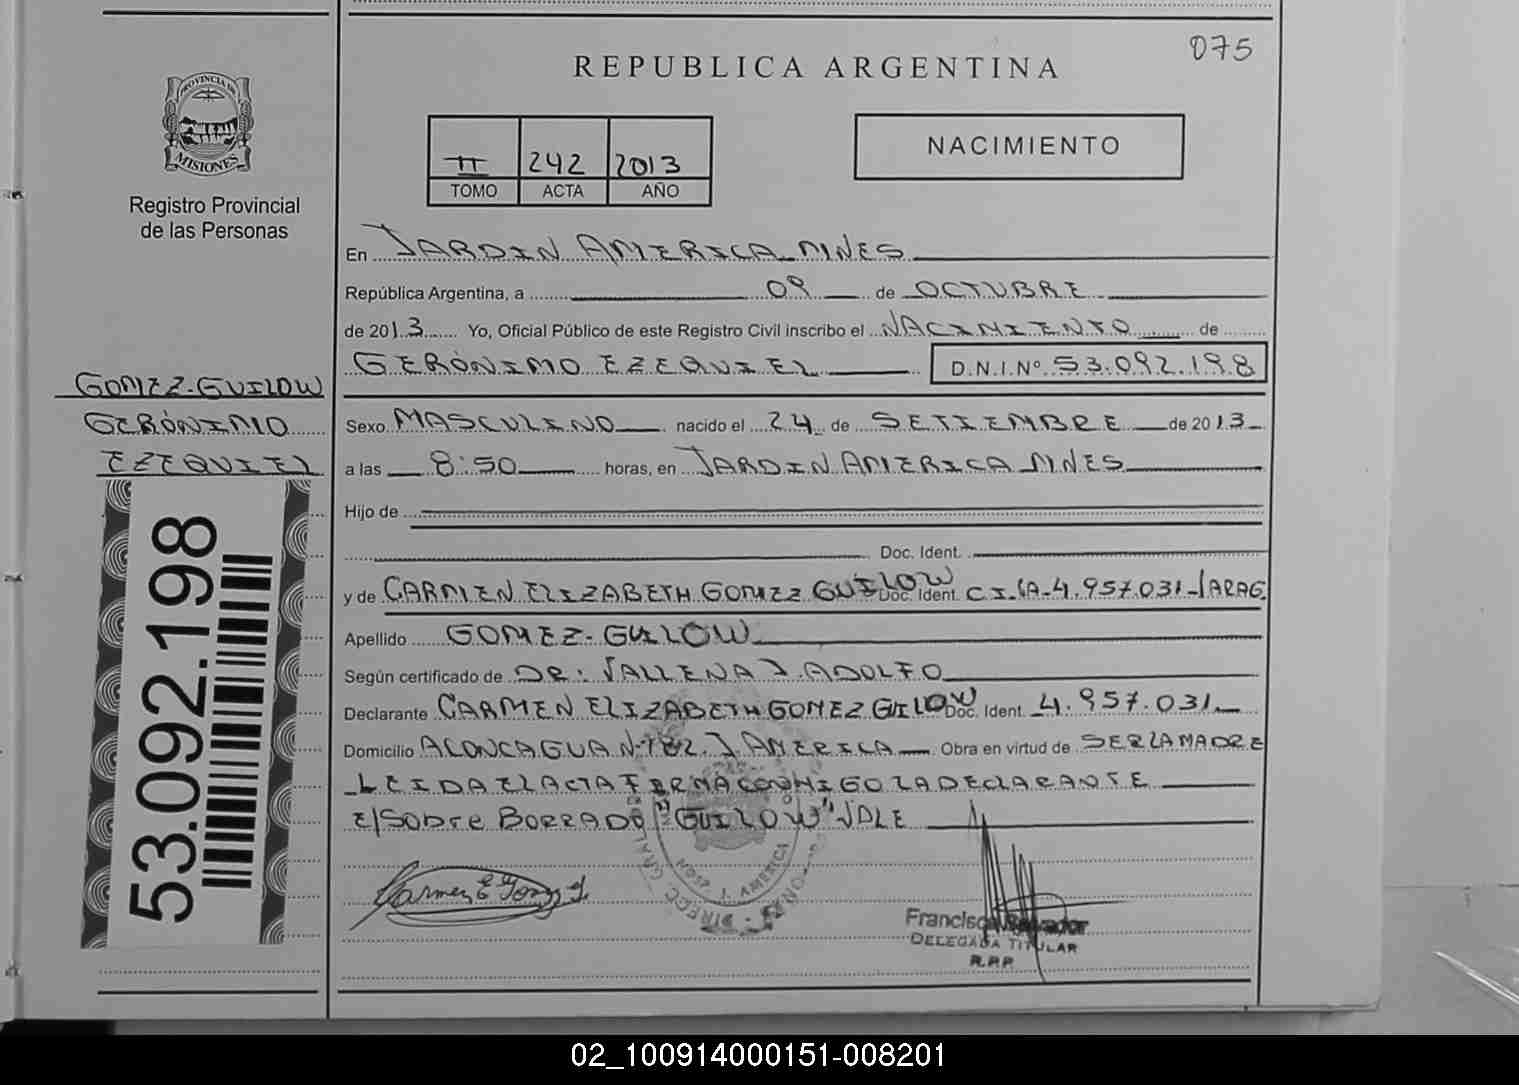 075
REPUBLICA ARGENTINA
PROVINCIA DE
MISIONES
Registro Provincial
de las Personas
II 242 2013
TOMO ACTA AÑO
NACIMIENTO
En JARDIN AMERICA MNES
República Argentina, a 09 de OCTUBRE
de 2013 Yo, Oficial Público de este Registro Civil inscribo el NACIMIENTO de
GERÓNIMO EZEQUIEL D.N.I.Nº 53.092.198
GOMEZ-GUILOW
GERÓNIMO
EZEQUIEL
53.092.198
Sexo MASCULINO nacido el 24 de SETIEMBRE de 2013
a las 8:50 horas, en JARDIN AMERICA MNES
Hijo de
Doc. Ident.
y de CARMEN ELIZABETH GOMEZ GUILOW Doc. Ident. C.I. 4.957.031
Apellido GOMEZ-GUILOW
Según certificado de DR: VALLENA J. ADOLFO
Declarante CARMEN ELIZABETH GOMEZ GUILOW Doc. Ident. 4.957.031
Domicilio ACONCAGUA J. AMERICA Obra en virtud de SER LA MADRE
LEIDA EL ACTA FIRMA CONMIGO LA DECLARANTE
E/SOBRE BORRADO "GUILOW" VALE
Carmen E Gomez G.
Francisco Salvador
DELEGADA TITULAR
R.P.P.
02_100914000151-008201